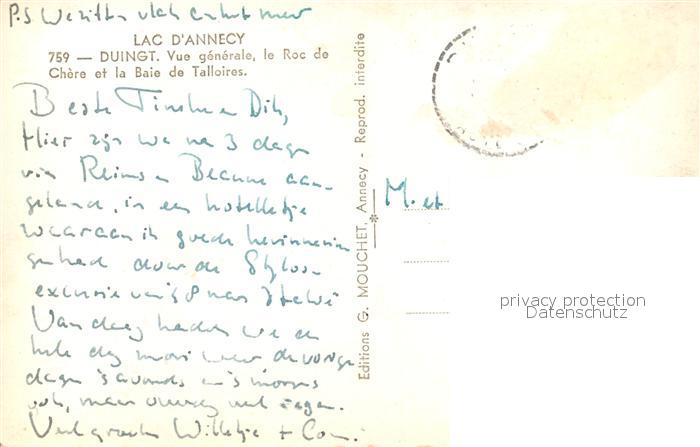 P.S We zitten vlak aan het meer
LAC D'ANNECY
759 — DUINGT. Vue générale, le Roc de
Chère et la Baie de Talloires.
Beste Tineke en Dik,
Hier zijn we na 3 dagen
via Reims en Beaune aan-
geland, in een hotelletje
waaraan ik goede herinnering
gehad door de
excursie van '58 naar Italië
Vandaag hadden we een
hele dag mooi weer de vorige
dagen 's avonds en 's morgens
ook, maar overdag veel regen.
Veel groeten Willetje + Con.
Editions G. MOUCHET, Annecy - Reprod. interdite
M. et
privacy protection
Datenschutz